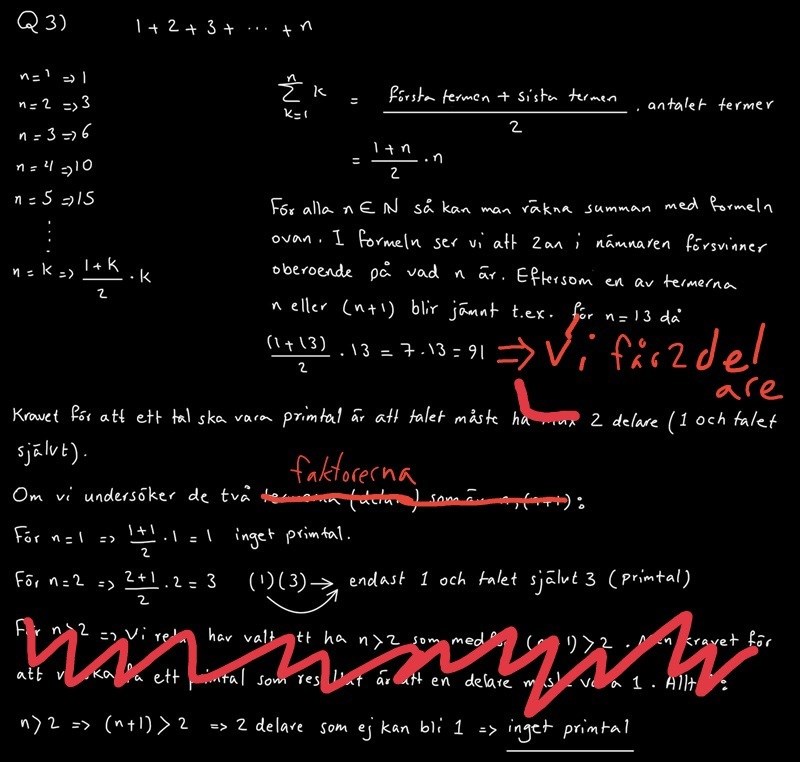 Q3) 1 + 2 + 3 + ... + n
n = 1 => 1
n = 2 => 3
n = 3 => 6
n = 4 => 10
n = 5 => 15
⋮
n = k => (1+k)/2 · k
n
∑ k = (första termen + sista termen)/2 · antalet termer
k=1
= (1+n)/2 · n
För alla n ∈ N så kan man räkna summan med formeln
ovan. I formeln ser vi att 2an i nämnaren försvinner
oberoende på vad n är. Eftersom en av termerna
n eller (n+1) blir jämnt t.ex. för n = 13 då
(1+13)/2 · 13 = 7 · 13 = 91 => Vi får 2 del
are
Kravet för att ett tal ska vara primtal är att talet måste ha max 2 delare (1 och talet
självt).
faktorerna
Om vi undersöker de två termerna (delare) som är n, (n+1):
För n = 1 => (1+1)/2 · 1 = 1 inget primtal.
För n = 2 => (2+1)/2 · 2 = 3 (1)(3) → endast 1 och talet självt 3 (primtal)
För n > 2 => Vi redan har valt att ha n > 2 som medför (n+1) > 2 . Men kravet för
att vi ska få ett primtal som resultat är att en delare måste vara 1. Alltså:
n > 2 => (n+1) > 2 => 2 delare som ej kan bli 1 => inget primtal